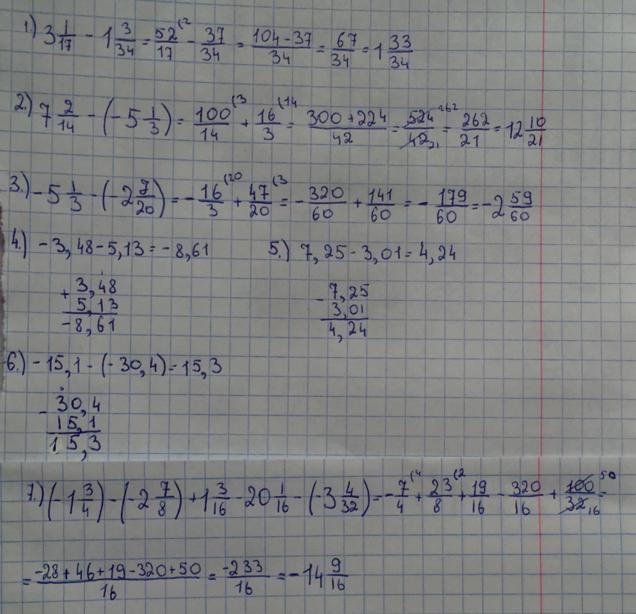 1.) 3 1/17 - 1 3/34 = 52/17 (2 - 37/34 = (104-37)/34 = 67/34 = 1 33/34
2.) 7 2/14 - (-5 1/3) = 100/14 (3 + 16/3 (14 = (300+224)/42 = 524/42 262 21 = 262/21 = 12 10/21
3.) -5 1/3 - (-2 7/20) = -16/3 (20 + 47/20 (3 = -320/60 + 141/60 = -179/60 = -2 59/60
4.) -3,48-5,13=-8,61 5.) 7,25-3,01=4,24
+ 3,48 - 7,25
5,13 3,01
-8,61 4,24
6.) -15,1-(-30,4)=15,3
- 30,4
15,1
15,3
7.) (-1 3/4) - (-2 7/8) + 1 3/16 - 20 1/16 - (-3 4/32) = -7/4 (4 + 23/8 (2 + 19/16 - 320/16 + 100/32 50 16 =
= (-28+46+19-320+50)/16 = -233/16 = -14 9/16